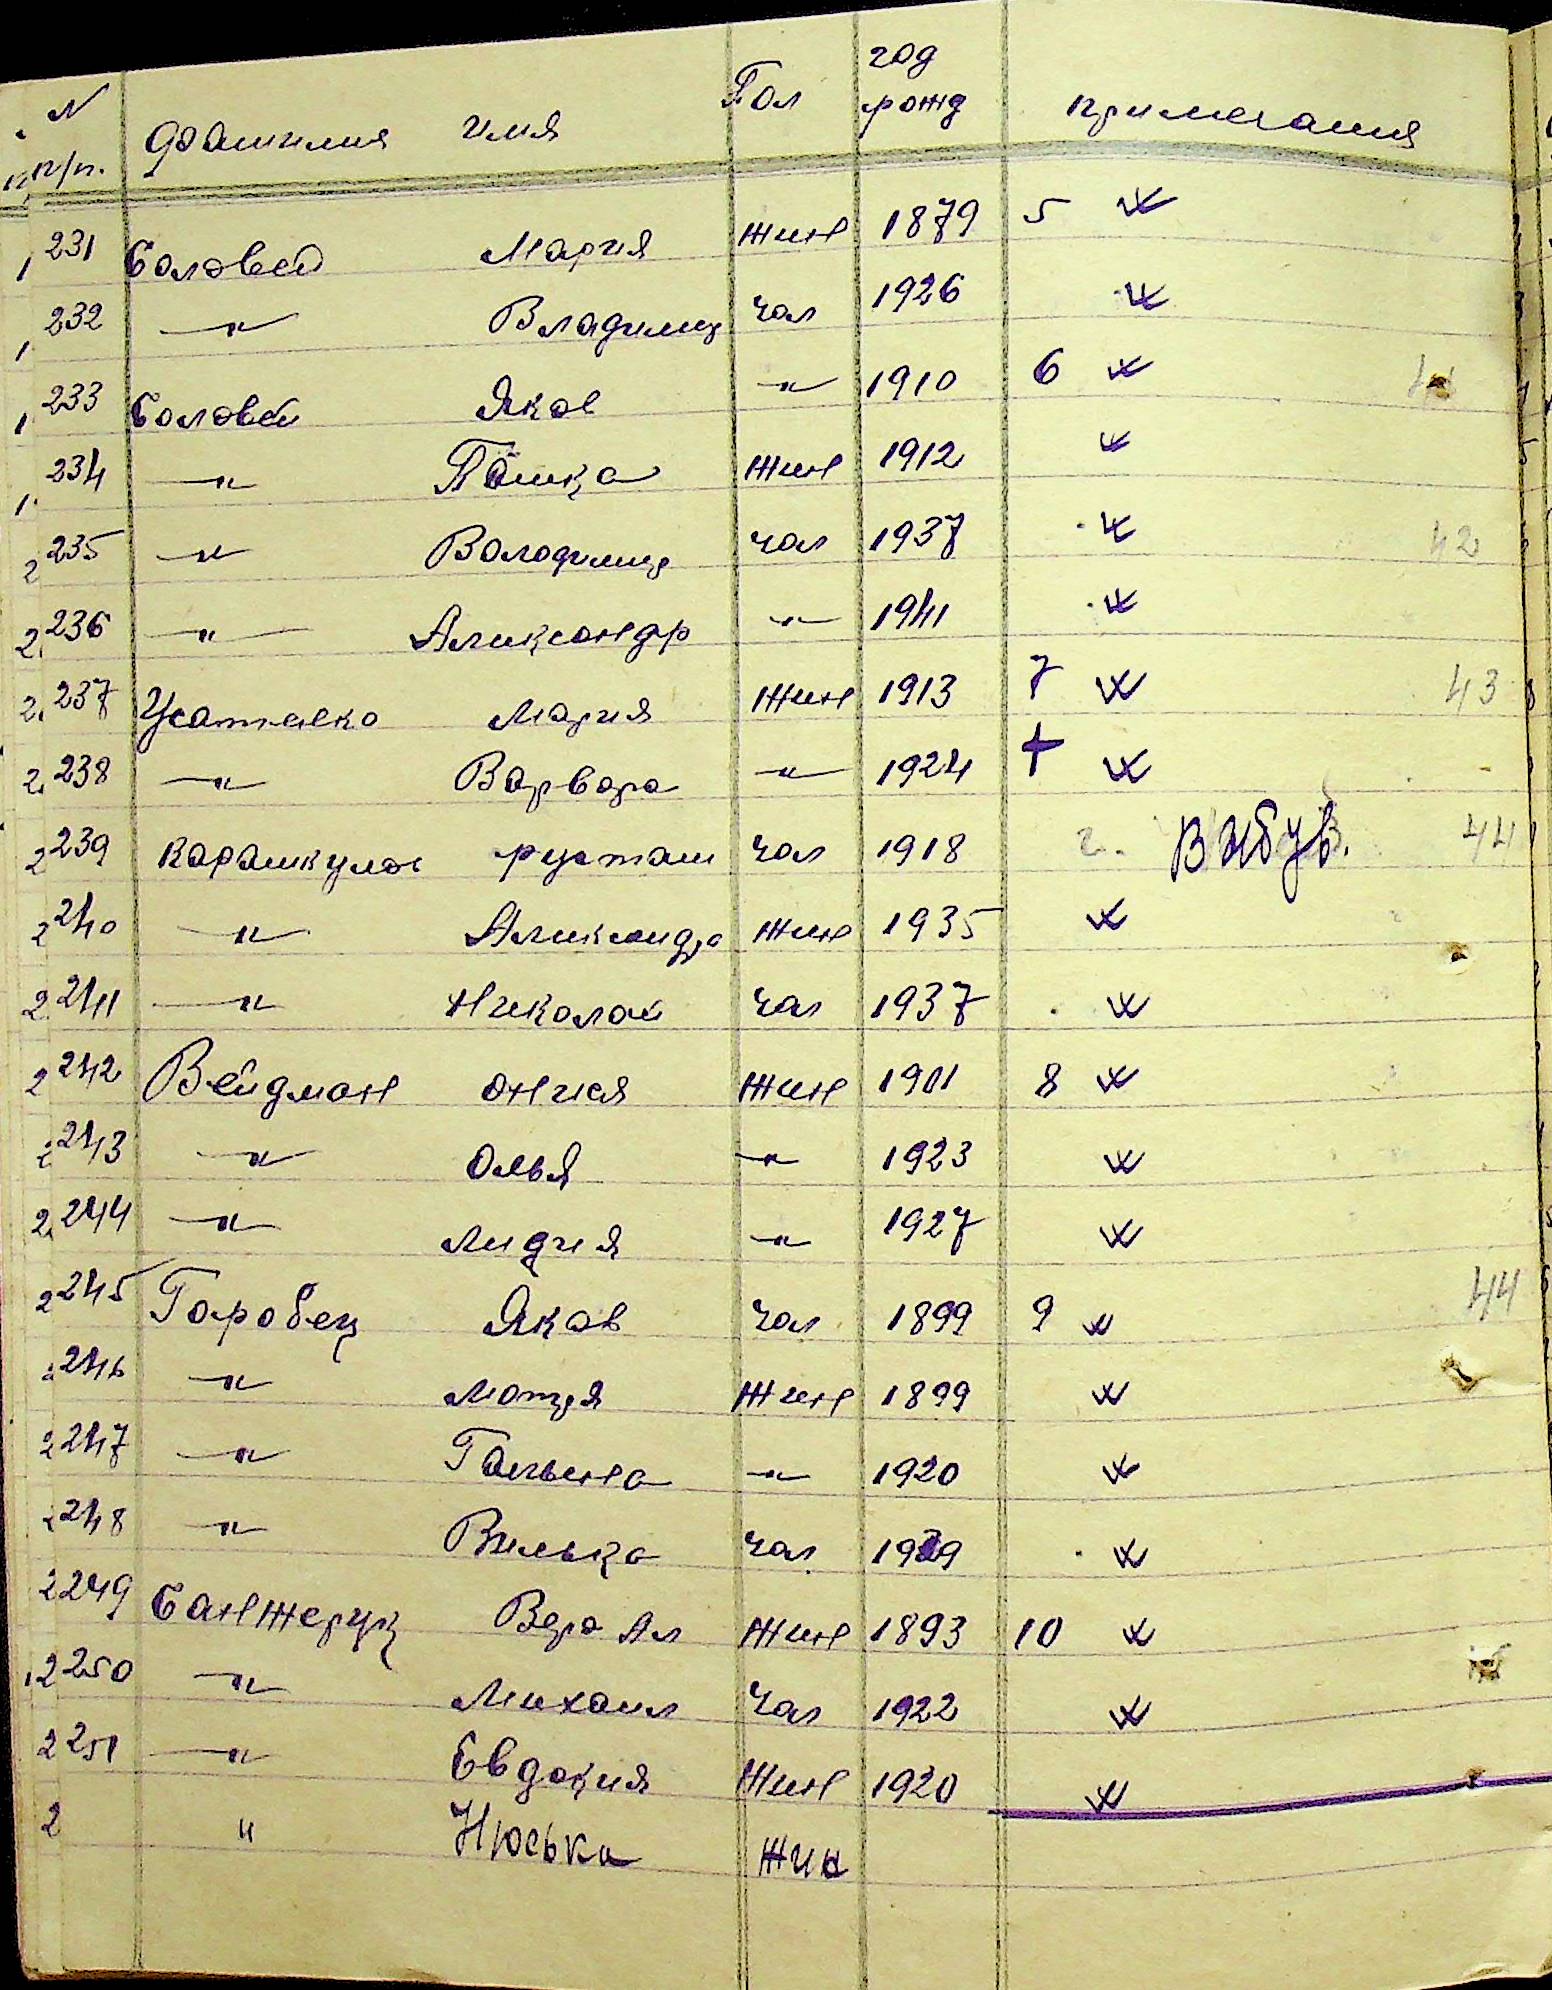 N п/п. Фамилия имя Пол год рожд примечания
231 Соловей Мария жин 1879 5
232 —"— Владимир чол 1926
233 Соловей Яков —"— 1910 6
234 —"— жин 1912
235 —"— Володимир чол 1937 42
236 —"— Александр —"— 1941
237 Усатенко Мария жин 1913 7 43
238 —"— Варвара —"— 1924 +
239 Карамкулов рустам чол 1918 Вибув. 44
240 —"— Александра жин 1935
241 —"— Николай чол 1937
242 Вейдман жин 1901 8
243 —"— —"— 1923
244 —"— Лидия —"— 1927
245 Горобец Яков чол 1899 9 44
246 —"— Мотря жин 1899
247 —"— —"— 1920
248 —"— Вилька чол
249 Санжерук Вера Ал жин 1893 10
250 —"— Михаил чол 1922
251 —"— Евдокия жин 1920
2 " Нюська жин